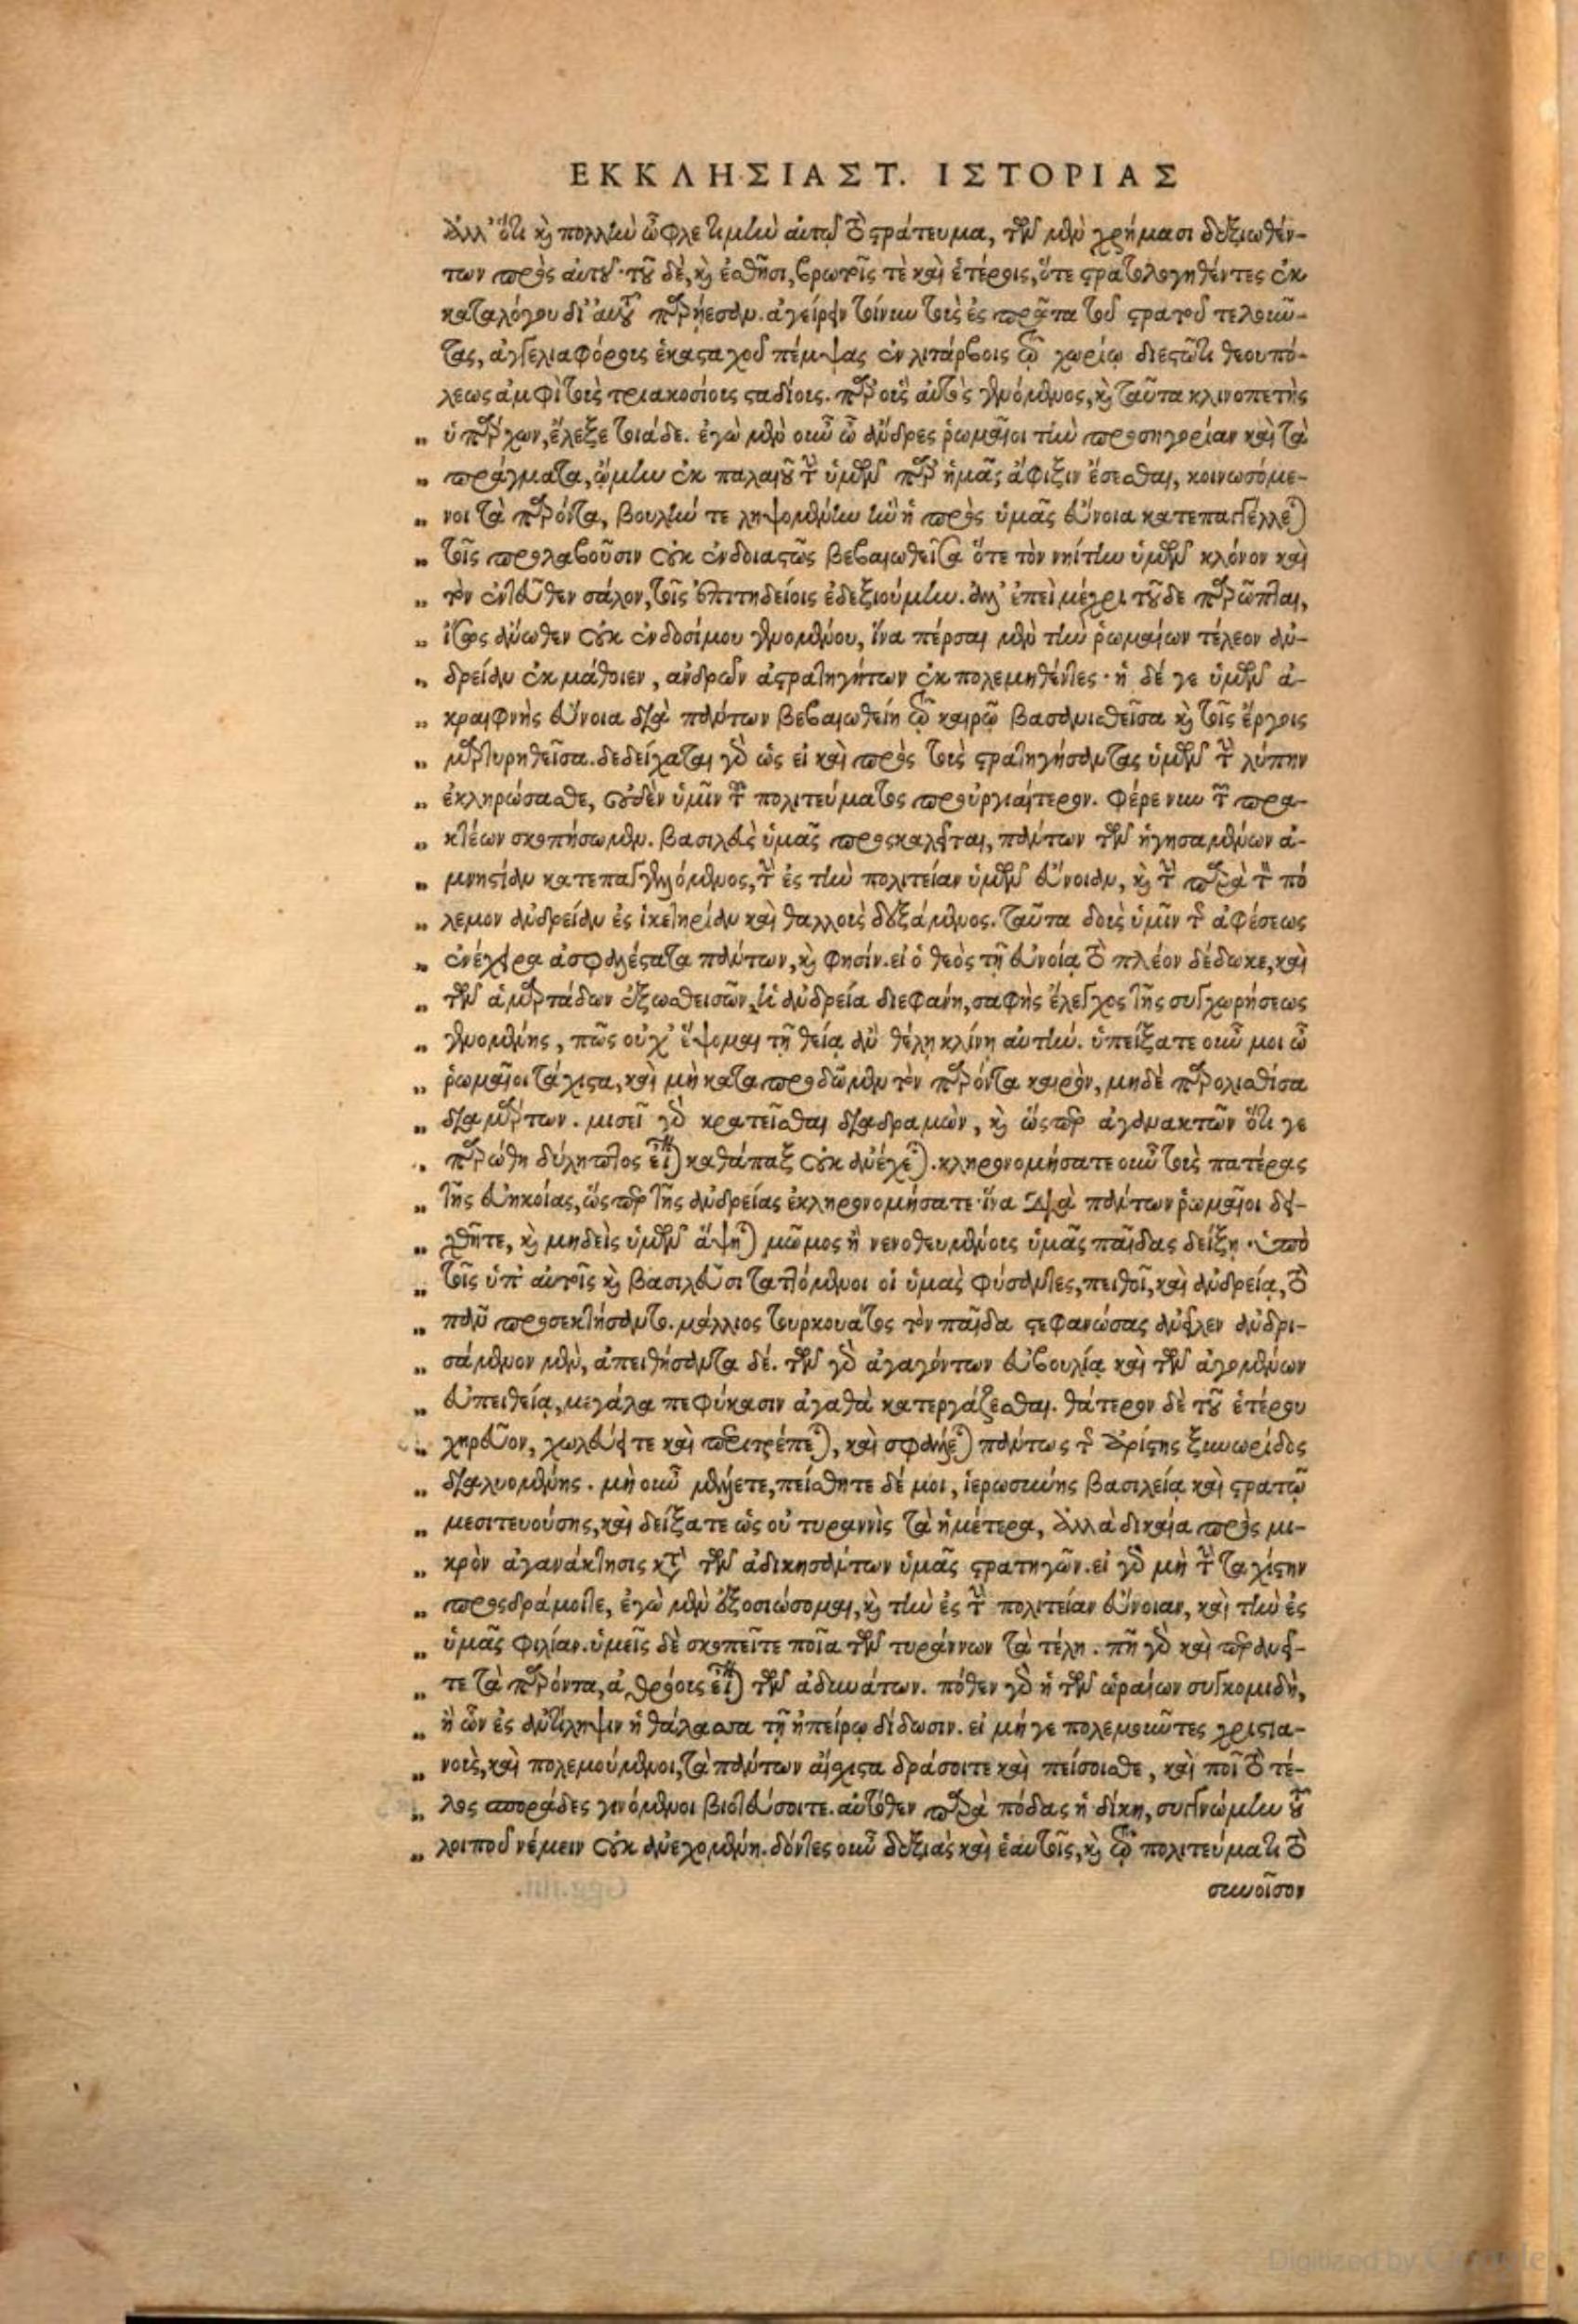 ΕΚΚΛΗΣΙΑΣΤ. ΙΣΤΟΡΙΑΣ
ἀλλ' ὅτι καὶ πολλὴν ὦφλε τιμὴν αὐτῷ τὸ στράτευμα, τῶν μὲν χρήμασι δεξιωθέν-
των πρὸς αὐτοῦ· τοῦ δὲ, καὶ ἐσθῆσι, βρωτοῖς τὲ καὶ ἑτέροις, ὅτε στρατολογηθέντες ἐκ
καταλόγου δι' αὐτοῦ παρῄεσαν. ἀγείρει τοίνυν τοὺς ἐς πρῶτα τοῦ στρατοῦ τελοῦν-
τας, ἀγγελιαφόροις ἑκασταχοῦ πέμψας ἐν λιτάρβοις τῷ χωρίῳ διεστῶτι θεουπό-
λεως ἀμφὶ τοὺς τριακοσίους σταδίους. παρ' οἷς αὐτὸς γενόμενος, καὶ ταῦτα κλινοπετὴς
„ ὑπάρχων, ἔλεξε τοιάδε. ἐγὼ μὲν οὖν ὦ ἄνδρες ῥωμαῖοι τὴν προσηγορίαν καὶ τὰ
„ πράγματα, ᾤμην ἐκ παλαιοῦ τὴν ὑμῶν παρ' ἡμᾶς ἄφιξιν ἔσεσθαι, κοινωσόμε-
„ νοι τὰ παρόντα, βουλήν τε ληψομένην ἣν ἡ πρὸς ὑμᾶς εὔνοια κατεπαγγέλλεται
„ τοῖς προλαβοῦσιν οὐκ ἐνδοιαστῶς βεβαιωθεῖσα ὅτε τὸν νηίτην ὑμῶν κλόνον καὶ
„ τὸν ἐντεῦθεν σάλον, τοῖς ἐπιτηδείοις ἐδεξιούμην. ἀλλ' ἐπεὶ μέχρι τοῦδε παρῶπται,
„ ἴσως ἄνωθεν οὐκ ἐνδοσίμου γενομένου, ἵνα πέρσαι μὲν τὴν ῥωμαίων τέλεον ἀν-
„ δρείαν ἐκμάθοιεν, ἀνδρῶν ἀστρατηγήτων ἐκπολεμηθέντες· ἡ δέ γε ὑμῶν ἀ-
„ κραιφνὴς εὔνοια διὰ πάντων βεβαιωθείη τῷ καιρῷ βασανισθεῖσα καὶ τοῖς ἔργοις
„ μαρτυρηθεῖσα. δεδείχαται γὰρ ὡς εἰ καὶ πρὸς τοὺς στρατηγήσαντας ὑμῶν τὴν λύπην
„ ἐκληρώσασθε, οὐδὲν ὑμῖν τοῦ πολιτεύματος προὐργιαίτερον. φέρε νυν τῶν πρα-
„ κτέων σκοπήσωμεν. βασιλεὺς ὑμᾶς προσκαλεῖται, πάντων τῶν ἡγησαμένων ἀ-
„ μνηστίαν κατεπαγγελλόμενος, τὴν ἐς τὴν πολιτείαν ὑμῶν εὔνοιαν, καὶ τὴν παρὰ τὸν πό
„ λεμον ἀνδρείαν ἐς ἱκετηρίαν καὶ θαλλοὺς δεξάμενος. ταῦτα δοὺς ὑμῖν τῆς ἀφέσεως
„ ἐνέχειρα ἀσφαλέστατα πάντων, καὶ φησίν. εἰ ὁ θεὸς τῇ εὐνοίᾳ τὸ πλέον δέδωκε, καὶ
„ τῶν ἁμαρτάδων ἐξωσθεισῶν, ἡ ἀνδρεία διεφάνη, σαφὴς ἔλεγχος τῆς συγχωρήσεως
„ γενομένης, πῶς οὐχ' ἕψομαι τῇ θείᾳ ἀν θέλῃ κλίνῃ αὐτήν. ὑπείξατε οὖν μοι ὦ
„ ῥωμαῖοι τάχιστα, καὶ μὴ καταπροδῶμεν τὸν παρόντα καιρὸν, μηδὲ παρολισθίσα
„ διαμάρτων. μισεῖ γὰρ κρατεῖσθαι διαδραμὼν, καὶ ὥσπερ ἀγανακτῶν ὅτι γε
„ παρώθη δύληπτος εἶναι καθάπαξ οὐκ ἀνέχεται. κληρονομήσατε οὖν τοὺς πατέρας
„ τῆς εὐηκοίας, ὥσπερ τῆς ἀνδρείας ἐκληρονομήσατε· ἵνα διὰ πάντων ῥωμαῖοι δει-
„ χθῆτε, καὶ μηδεὶς ὑμῶν ἅψηται μῶμος ἢ νενοθευμένους ὑμᾶς παῖδας δείξῃ. ὑπὸ
„ τοῖς ὑπάτοις καὶ βασιλεῦσι ταττόμενοι οἱ ὑμᾶς φύσαντες, πειθοῖ, καὶ ἀνδρείᾳ, τὸ
„ πᾶν προσεκτήσαντο. μάλλιος τουρκουάτος τὸν παῖδα στεφανώσας ἀνεῖλεν ἀνδρι-
„ σάμενον μὲν, ἀπειθήσαντα δέ. τῶν γὰρ ἀγαγόντων εὐβουλίᾳ καὶ τῶν ἀγομένων
„ εὐπειθείᾳ, μεγάλα πεφύκασιν ἀγαθὰ κατεργάζεσθαι. θάτερον δὲ τοῦ ἑτέρου
„ χηρεῦον, χωλεύει τε καὶ περιτρέπεται, καὶ σφάλλεται πάντως τῆς ἀρίστης ξυνωρίδος
„ διαλυομένης. μὴ οὖν μέλλετε, πείσθητε δέ μοι, ἱερωσύνης βασιλείᾳ καὶ στρατῷ
„ μεσιτευούσης, καὶ δείξατε ὡς οὐ τυραννὶς τὰ ἡμέτερα, ἀλλὰ δικαία πρὸς μι-
„ κρὸν ἀγανάκτησις κατὰ τῶν ἀδικησάντων ὑμᾶς στρατηγῶν. εἰ γὰρ μὴ τὴν ταχίστην
„ προσδράμοιτε, ἐγὼ μὲν ἐξοσιώσομαι, καὶ τὴν ἐς τὴν πολιτείαν εὔνοιαν, καὶ τὴν ἐς
„ ὑμᾶς φιλίαν. ὑμεῖς δὲ σκοπεῖτε ποῖα τῶν τυράννων τὰ τέλη. πῆ γὰρ καὶ περανεῖ-
„ τε τὰ παρόντα, ἀθρόους εἶναι τῶν ἀδυνάτων. πόθεν γὰρ ἡ τῶν ὡραίων συγκομιδὴ,
„ ἢ ὧν ἐς ἀντίληψιν ἡ θάλασσα τῇ ἠπείρῳ δίδωσιν. εἰ μή γε πολεμοῦντες χριστια-
„ νοὺς, καὶ πολεμούμενοι, τὰ πάντων αἴσχιστα δράσοιτε καὶ πείσοισθε, καὶ ποῖ τὸ τέ-
„ λος σποράδες γινόμενοι βιοτεύσοιτε. αὐτόθεν παρὰ πόδας ἡ δίκη, συγγνώμην τοῦ
„ λοιποῦ νέμειν οὐκ ἀνεχομένη. δόντες οὖν δεξιὰς καὶ ἑαυτοῖς, καὶ τῷ πολιτεύματι τὸ
συνοῖσον
Digitized by Google